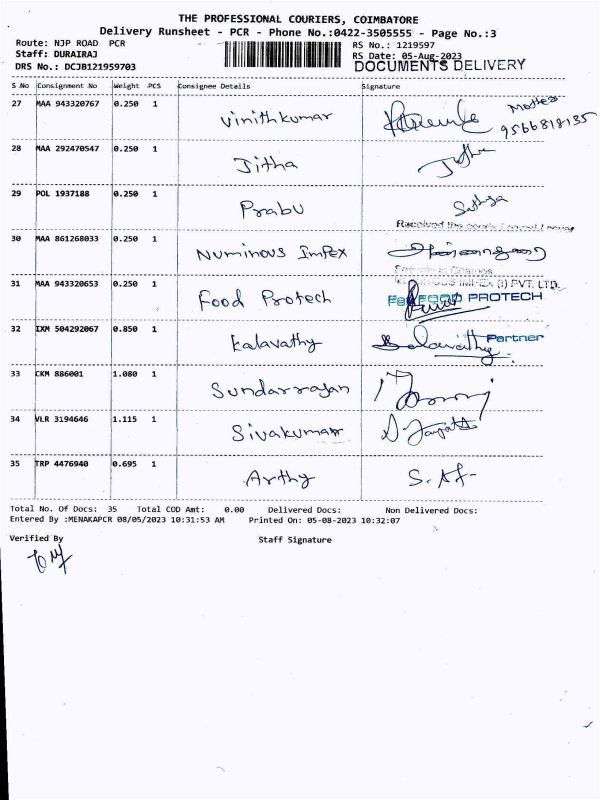 THE PROFESSIONAL COURIERS, COIMBATORE
Delivery Runsheet - PCR - Phone No.:0422-3505555 - Page No.:3
Route: NJP ROAD PCR
RS No.: 1219597
Staff: DURAIRAJ
RS Date: 05-Aug-2023
DRS No.: DCJB121959703
DOCUMENTS DELIVERY
S No Consignment No Weight PCS Consignee Details Signature
27 MAA 943320767 0.250 1 Vinithkumar Mother
9566818135
28 MAA 292470547 0.250 1 Jitha
29 POL 1937188 0.250 1 Prabu Sathya
Received the
30 MAA 861268033 0.250 1 Numinous Impex
IMPEX (I) PVT. LTD.
31 MAA 943320653 0.250 1 Food Protech
For FOOD PROTECH
Partner
32 IXM 504292067 0.850 1 Kalavathy
33 CKM 886001 1.080 1 Sundarrajan
34 VLR 3194646 1.115 1 Sivakumar
35 TRP 4476940 0.695 1 Arthy
Total No. Of Docs: 35 Total COD Amt: 0.00 Delivered Docs: Non Delivered Docs:
Entered By :MENAKAPCR 08/05/2023 10:31:53 AM Printed On: 05-08-2023 10:32:07
Verified By Staff Signature